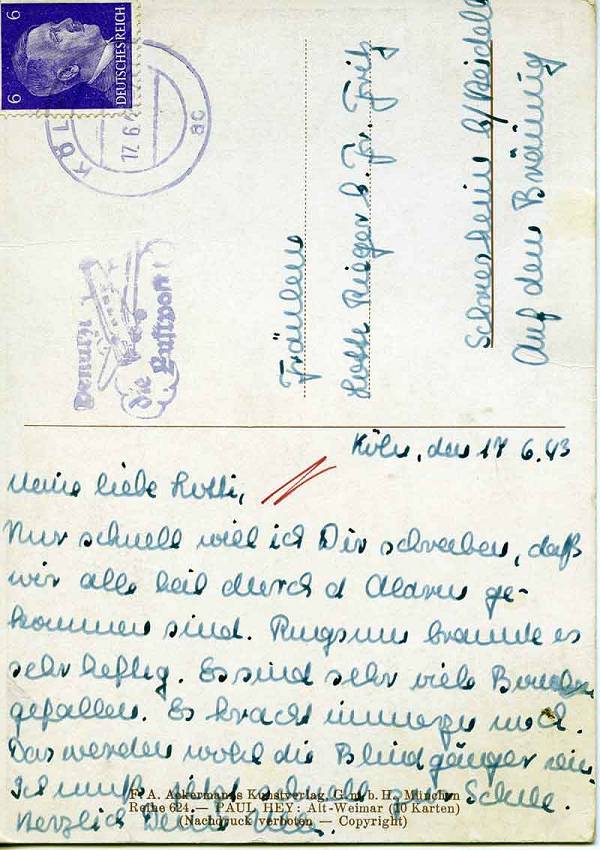 6
6
DEUTSCHES REICH
KÖL
17.6.
ac
Benutzt
die Luftpost!
Fräulein
Lotte Rieger b. Fr. Fritz
Schriesheim b/Heidel
Auf dem Bräunig
Köln, den 17 6.43
Meine liebe Lotti,
Nur schnell will ich Dir schreiben, daß
wir alle heil durch d Alarm ge-
kommen sind. Ringsum brannte es
sehr heftig. Es sind sehr viele Bomben
gefallen. Es kracht immerzu noch.
Das werden wohl die Blindgänger sein
Ich muß zur Schule.
Herzlich Deine
F. A. Ackermanns Kunstverlag, G. m. b. H., München
Reihe 624. — PAUL HEY: Alt-Weimar (10 Karten)
(Nachdruck verboten — Copyright)